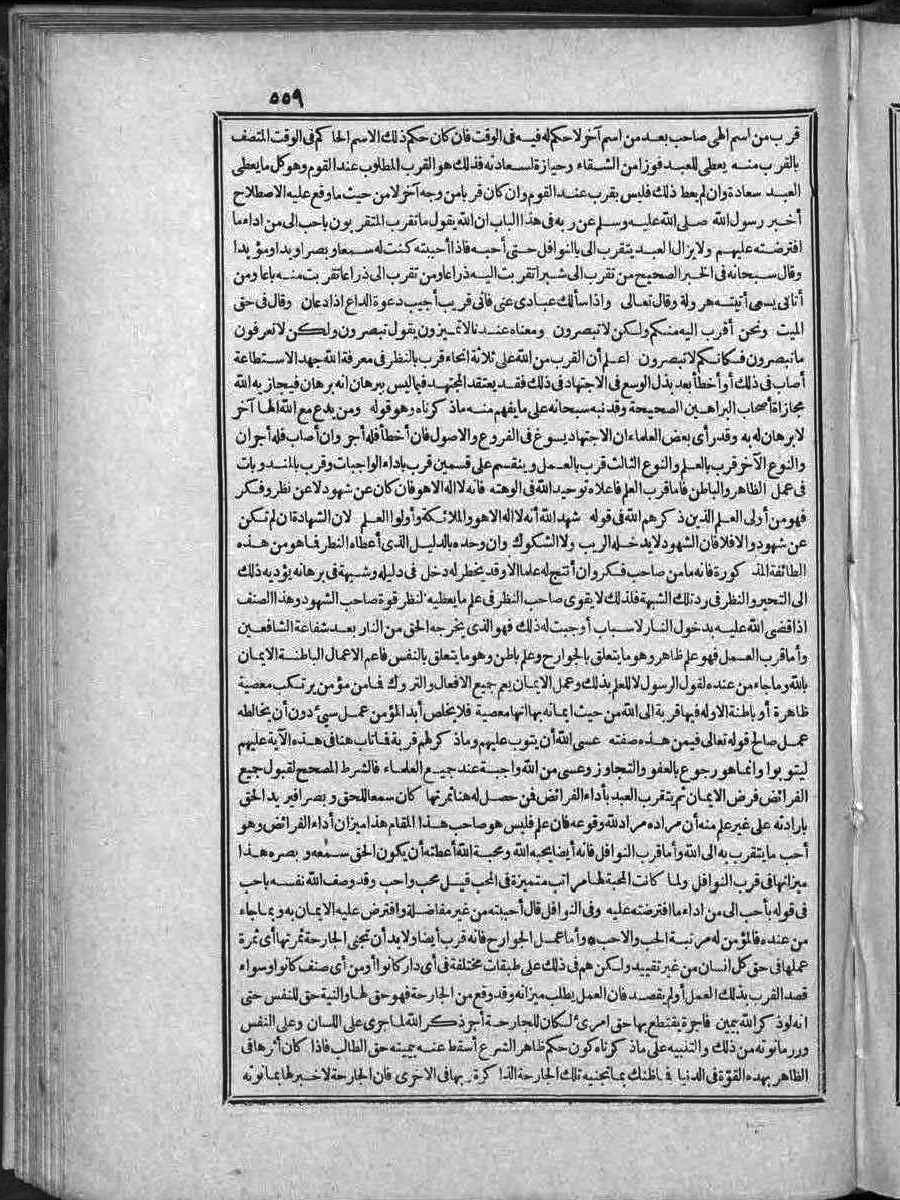 ٥٥٩
قرب من اسم الهى صاحب بعد من اسم آخر لا حكم له فيه فى الوقت فان كان حكم ذلك الاسم الحاكم فى الوقت المتصف
بالقرب منه يعطى للعبد فوزا من الشقاء وحيازة لسعادته فذلك هو القرب المطلوب عند القوم وهو كل ما يعطى
العبد سعادة وان لم يعط ذلك فليس بقرب عند القوم وان كان قربا من وجه آخر لا من حيث ما وقع عليه الاصطلاح
أخبر رسول الله صلى الله عليه وسلم عن ربه فى هذا الباب ان الله يقول ما تقرب المتقربون باحب الى من اداء ما
افترضته عليهم ولا يزال العبد يتقرب الى بالنوافل حتى أحبه فاذا أحببته كنت له سمعا وبصرا ويدا ومؤيدا
وقال سبحانه فى الخبر الصحيح من تقرب الى شبرا تقربت اليه ذراعا ومن تقرب الى ذراعا تقربت منه باعا ومن
أتانى يسعى أتيته هرولة وقال تعالى واذا سألك عبادى عنى فانى قريب أجيب دعوة الداع اذا دعان وقال فى حق
الميت ونحن أقرب اليه منكم ولكن لا تبصرون ومعناه عندنا لا تميزون يقول تبصرون ولكن لا تعرفون
ما تبصرون فكانكم لا تبصرون اعلم أن القرب من الله على ثلاثة انحاء قرب بالنظر فى معرفة الله جهد الاستطاعة
أصاب فى ذلك أو أخطأ بعد بذل الوسع فى الاجتهاد فى ذلك فقد يعتقد المجتهد فيما ليس ببرهان انه برهان فيجازيه الله
مجازاة أصحاب البراهين الصحيحة وقد نبه سبحانه على ما يفهم منه ماذكرناه وهو قوله ومن يدع مع الله الها آخر
لا برهان له به وقد رأى بعض العلماء ان الاجتهاد يسوغ فى الفروع والاصول فان أخطأ فله أجر وان أصاب فله أجران
والنوع الآخر قرب بالعلم والنوع الثالث قرب بالعمل وينقسم على قسمين قرب باداء الواجبات وقرب بالمندوبات
فى عمل الظاهر والباطن فاما قرب العلم فاعلاه توحيد الله فى الوهته فانه لا اله الا هو فان كان عن شهود لا عن نظر وفكر
فهو من أولى العلم الذين ذكرهم الله فى قوله شهد الله أنه لا اله الا هو والملائكة وأولوا العلم لان الشهادة ان لم تكن
عن شهود والا فلا فان الشهود لا يدخله الريب ولا الشكوك وان وحده بالدليل الذى أعطاه النظر فما هو من هذه
الطائفة المذكورة فانه ما من صاحب فكر وان أنتج له علما الا وقد يخطر له دخل فى دليله وشبهة فى برهانه يؤديه ذلك
الى التحير والنظر فى رد تلك الشبهة فلذلك لا يقوى صاحب النظر فى علم ما يعطيه النظر قوة صاحب الشهود وهذا الصنف
اذا قضى الله عليه بدخول النار لاسباب أوجبت له ذلك فهو الذى يخرجه الحق من النار بعد شفاعة الشافعين
وأما قرب العمل فهو علم ظاهر وهو ما يتعلق بالجوارح وعلم باطن وهو ما يتعلق بالنفس فاعم الاعمال الباطنة الايمان
بالله وما جاء من عنده لقول الرسول لا للعلم بذلك وعمل الايمان يعم جميع الافعال والتروك فما من مؤمن يرتكب معصية
ظاهرة أو باطنة الا وله فيها قربة الى الله من حيث ايمانه بها انها معصية فلا يخلص أبدا لمؤمن عمل سيئ دون أن يخالطه
عمل صالح قوله تعالى فيمن هذه صفته عسى الله أن يتوب عليهم وما ذكر لهم قربة فما تاب هنا فى هذه الآية عليهم
ليتوبوا وانما هو رجوع بالعفو والتجاوز وعسى من الله واجبة عند جميع العلماء فالشرط المصحح لقبول جميع
الفرائض فرض الايمان ثم يتقرب العبد بأداء الفرائض فمن حصل له هنا ثمرتها كان سمعا للحق وبصرا فيريد الحق
بارادته على غير علم منه أن مراده مراد لله وقوعه فان علم فليس هو صاحب هذا المقام هذا ميزان أداء الفرائض وهو
أحب ما يتقرب به الى الله وأما قرب النوافل فانه أيضا يحبه الله ومحبة الله أعطته أن يكون الحق سمعه وبصره هذا
ميزانها فى قرب النوافل ولما كانت المحبة لها مراتب متميزة فى المحب قيل محب واحب وقد وصف الله نفسه باحب
فى قوله بأحب الى من اداء ما افترضته عليه وفى النوافل قال أحببته من غير مفاضلة وافترض عليه الايمان به وبما جاء
من عنده فالمؤمن له مرتبة الحب والاحب * وأما عمل الجوارح فانه قرب أيضا ولا بد أن تجنى الجارحة ثمرتها أى ثمرة
عملها فى حق كل انسان من غير تقييد ولكن هم فى ذلك على طبقات مختلفة فى أى دار كانوا أو من أى صنف كانوا وسواء
قصد القرب بذلك العمل أو لم يقصد فان العمل يطلب ميزانه وقد وقع من الجارحة فهو حق لها والنية حق للنفس حتى
انه لو ذكر الله بيمين فاجرة يقتطع بها حق امرئ لكان للجارحة أجر ذكر الله لما جرى على اللسان وعلى النفس
وزر مانوته من ذلك والتنبيه على ماذكرناه كون حكم ظاهر الشرع أسقط عنه بيمينه حق الطالب فاذا كان أثرها فى
الظاهر بهذه القوة فى الدنيا فماظنك بما تجنيه تلك الجارحة الذاكرة بها فى الاخرى فان الجارحة لا خبر لها بمانوته